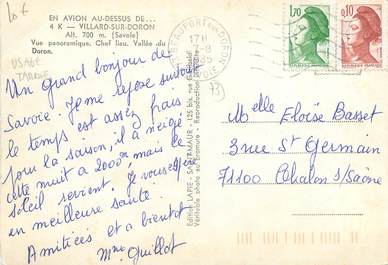 Lot
EN AVION AU-DESSUS DE...
4 K — VILLARD-SUR-DORON
Alt. 700 m. (Savoie)
Vue panoramique. Chef lieu. Vallée du
Doron.
USAGE
TARDIF
Un grand bonjour de
Savoie. Je me repose surtout
le temps est assez frais
pour la saison, il a neigé
cette nuit à 2000m mais le
soleil revient. Je vous espère
en meilleure santé.
Amitiées et a bientôt
Mme Guillot
Edition LAPIE - SAINT-MAUR - 125 bis, rue
Véritable photo au bromure - Reproduction
BEAUFORT SUR DORON
17H
7-8
1985
SAVOIE
73
1,70
0,10
Melle Eloïse Basset
3 rue St Germain
71100 Chalon s/Saône